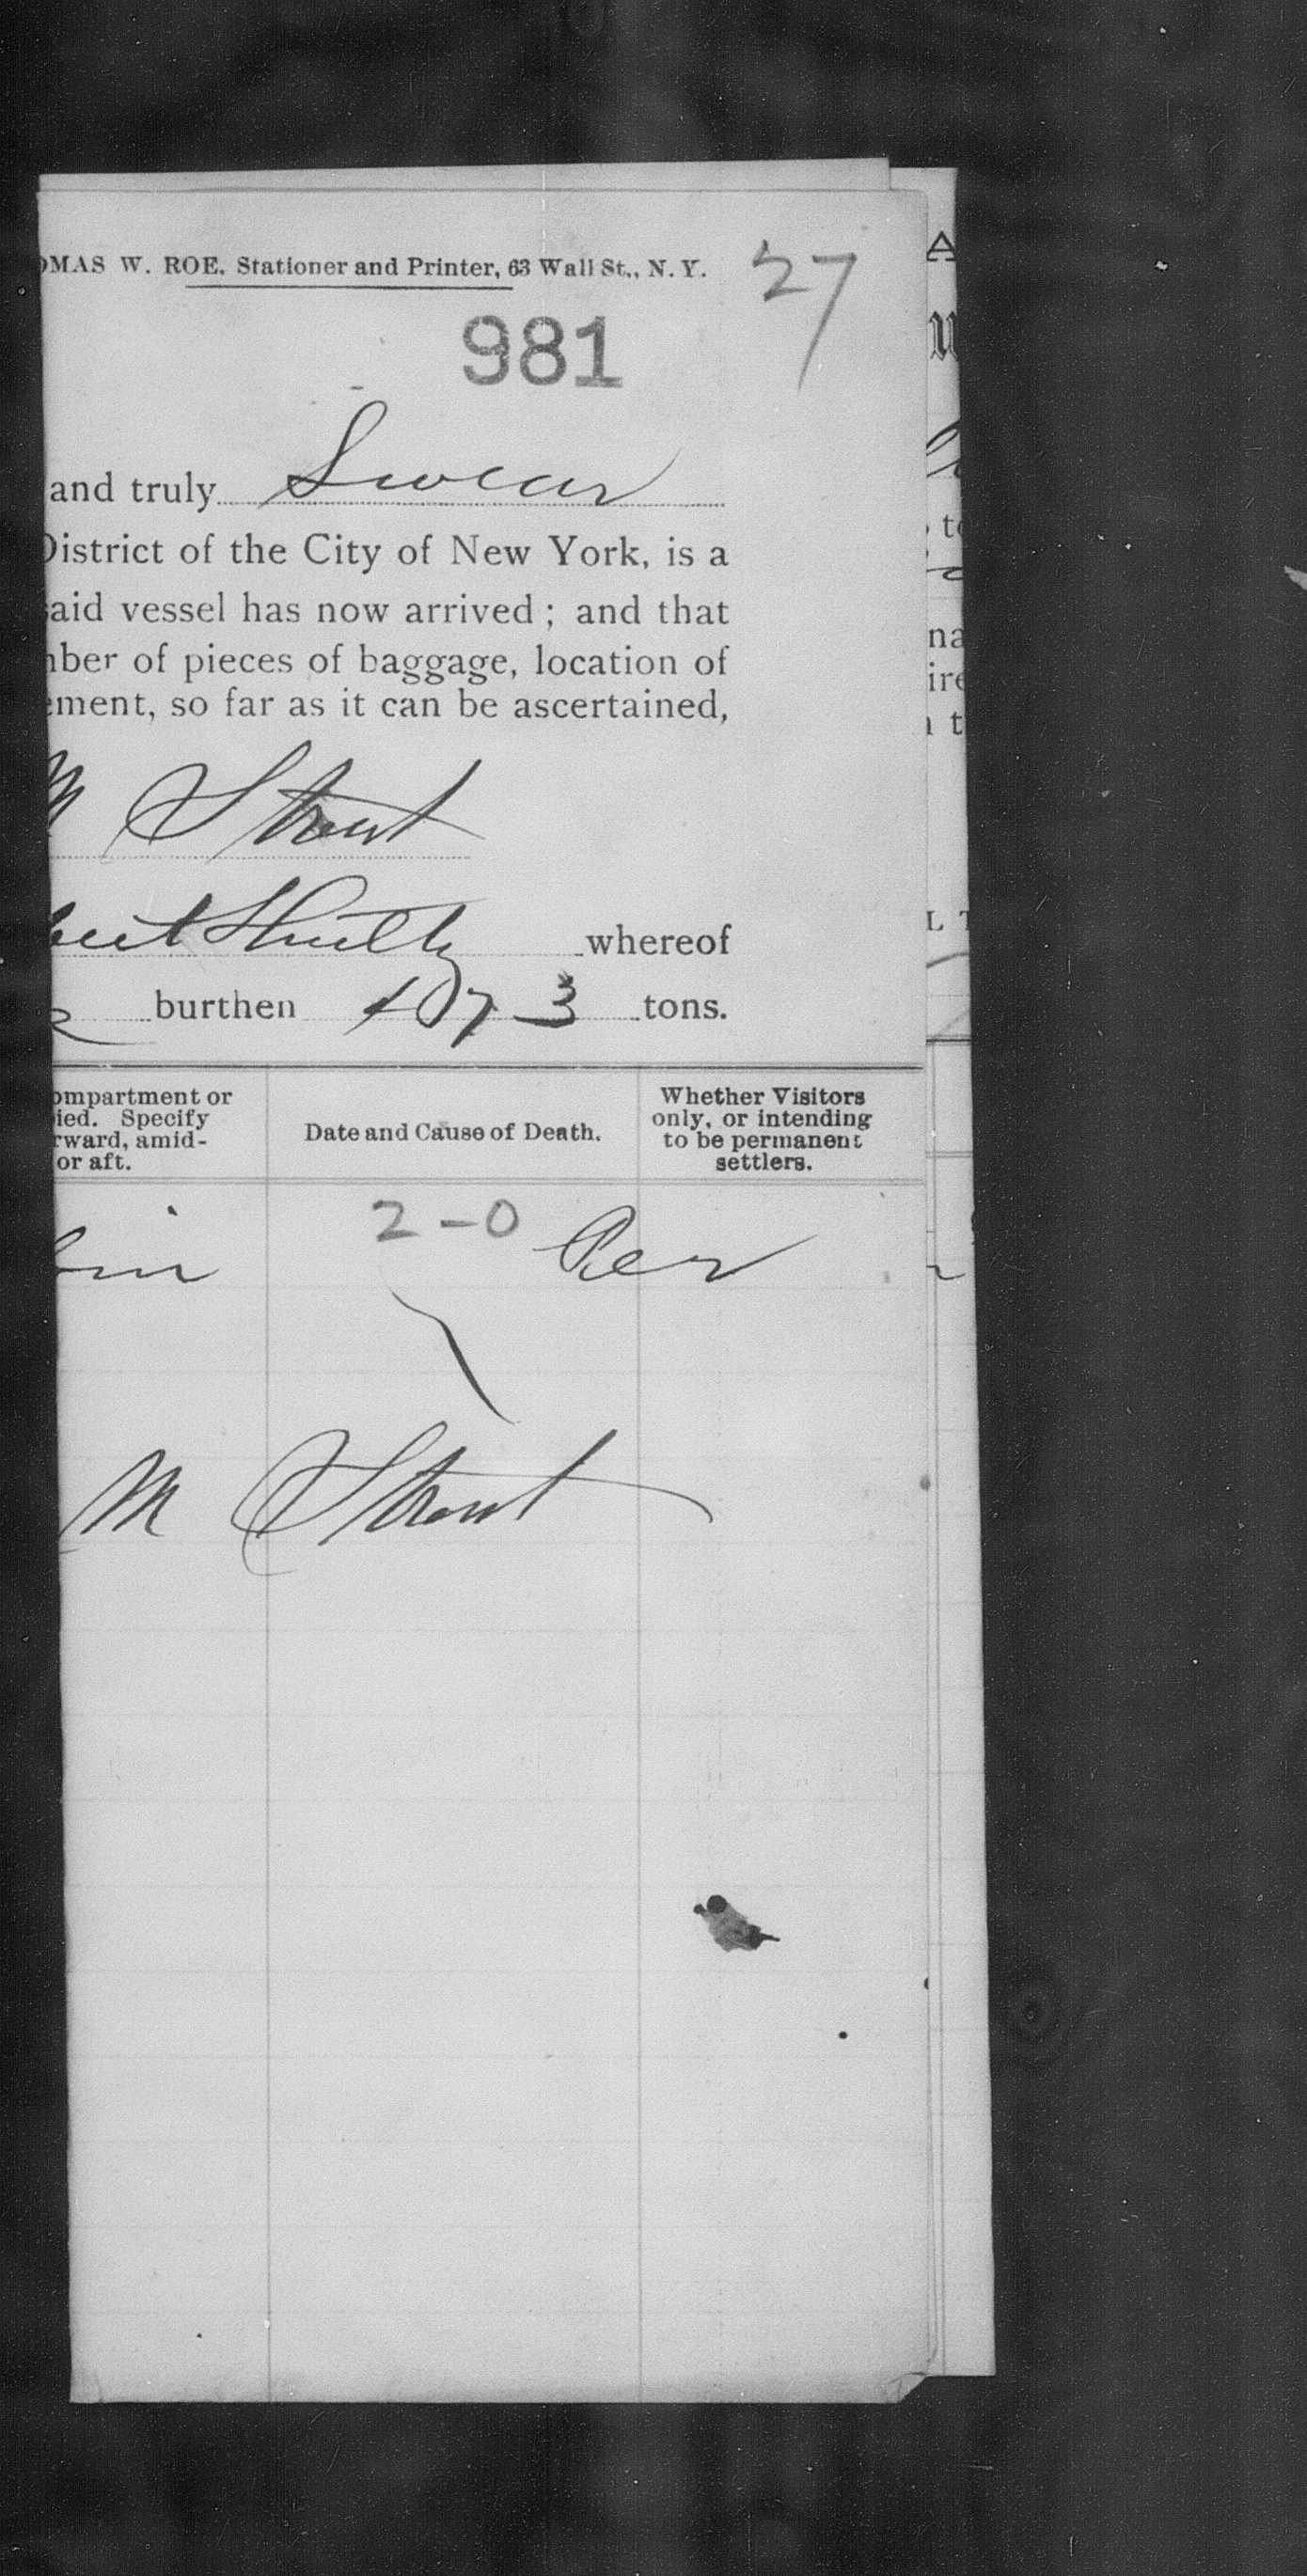 OMAS W. ROE, Stationer and Printer, 63 Wall St., N. Y.
27
981
and truly Swear
District of the City of New York, is a
said vessel has now arrived; and that
ber of pieces of baggage, location of
ement, so far as it can be ascertained,
M Strout
whereof
burthen 1073 tons.
ompartment or
ied. Specify
rward, amid-
or aft.
Date and Cause of Death.
Whether Visitors
only, or intending
to be permanent
settlers.
2-0 Per
M Strout